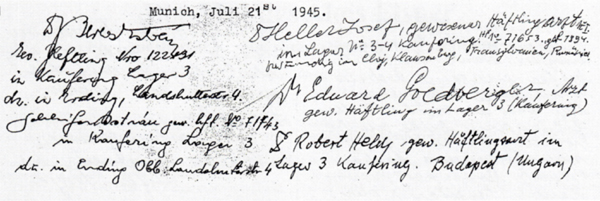 Munich, Juli 21st 1945.
Dr
gew. Heftling Nro 122431
in Kaufering Lager 3
dz. in Erding, Landshuterstr 4.
gew. Hftl. No
in Kaufering Lager 3
dz. in Erding Obb. Landshuterstr 4
Dr Heller Josef, gewesener Häftlingsarzt
im Lager No 3-4 Kaufering No 71653. geb. 1894.
zuständig in Cluj, Klausenburg, Transilvanien, Rumänien
Dr Edward Goldbergier, Arzt
gew. Häftling im Lager 3 (Kaufering)
Dr Robert Held gew. Häftlingsarzt im
Lager 3 Kaufering. Budapest (Ungarn)